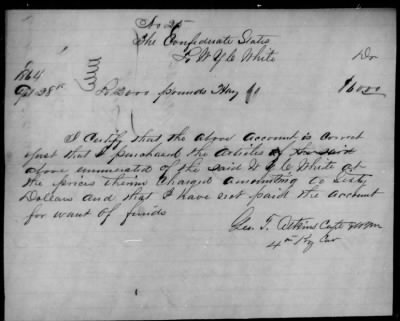 No 25
The Confederate States
To W Y C White Dr
1864
Oct 28th To 2000 pounds Hay 60.00
I certify that the above account is correct
& just that I purchased the articles
above enumerated of the said W Y C White at
the prices therein charged amounting to Sixty
Dollars and that I have not paid the account
for want of funds
Geo. T. Atkins Capt & AQM
4th Ky Cav